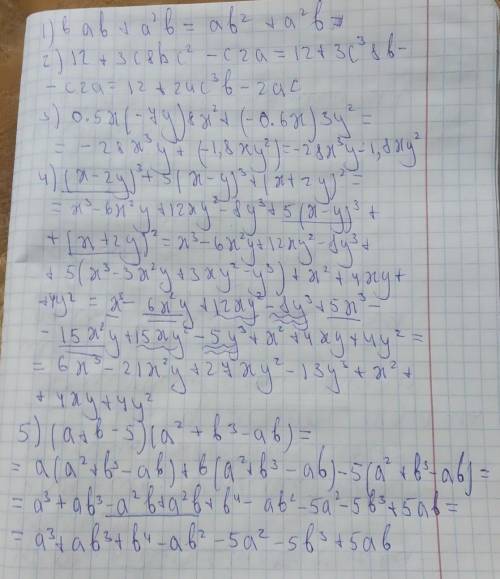 1) в ab + a²b = ab² + a²b =
2) 12 + 3c8bc² - c2a = 12 + 3c³8b -
- c2a = 12 + 24c³b - 2ac
3) 0.5x(-7y)8x² + (-0.6x)3y² =
= -28x³y + (-1,8xy²) = -28x³y - 1,8xy²
4) (x-2y)³ + 5(x-y)³ + (x+2y)² =
= x³ - 6x²y + 12xy² - 8y³ + 5(x-y)³ +
+ (x+2y)² = x³ - 6x²y + 12xy² - 8y³ +
+ 5(x³ - 3x²y + 3xy² - y³) + x² + 4xy +
+4y² = x³ - 6x²y + 12xy² - 8y³ + 5x³ -
- 15x²y + 15xy² - 5y³ + x² + 4xy + 4y² =
= 6x³ - 21x²y + 27xy² - 13y³ + x² +
+ 4xy + 4y²
5) (a + b - 5)(a² + b³ - ab) =
= a(a² + b³ - ab) + b(a² + b³ - ab) - 5(a² + b³ - ab) =
= a³ + ab³ - a²b + a²b + b⁴ - ab² - 5a² - 5b³ + 5ab =
= a³ + ab³ + b⁴ - ab² - 5a² - 5b³ + 5ab